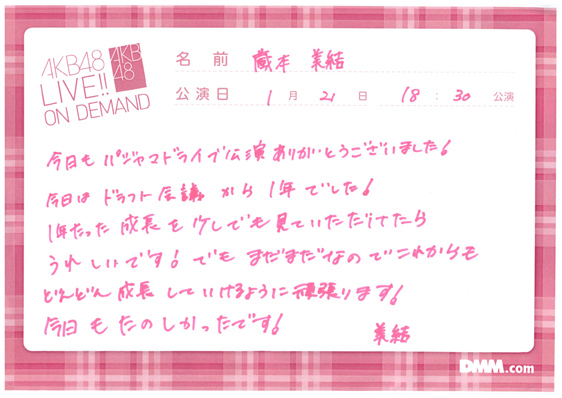 AKB48
LIVE!!
ON DEMAND
AKB
48
名 前 蔵本 美結
公演日 1 月 21 日 18 : 30 公演
今日も パジャマドライブ公演 ありがとうございました!
今日は ドラフト会議 から 1年 でした!
1年たった 成長 を 少しでも 見ていただけてたら
うれしいです! でも まだまだなので これからも
どんどん 成長 していけるように 頑張ります!
今日も たのしかったです!
美結
DMM.com